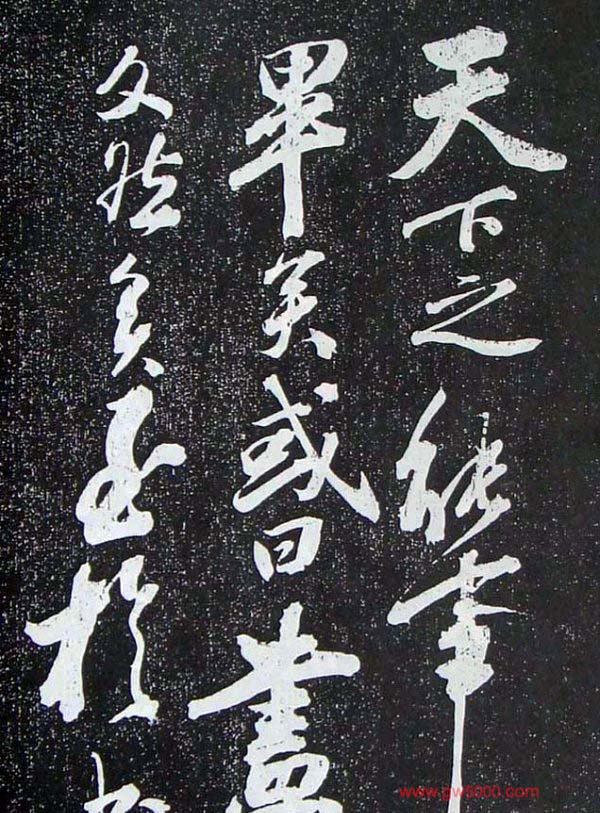 天下之能事
畢矣或曰
文然矣至於
www.gw5000.com